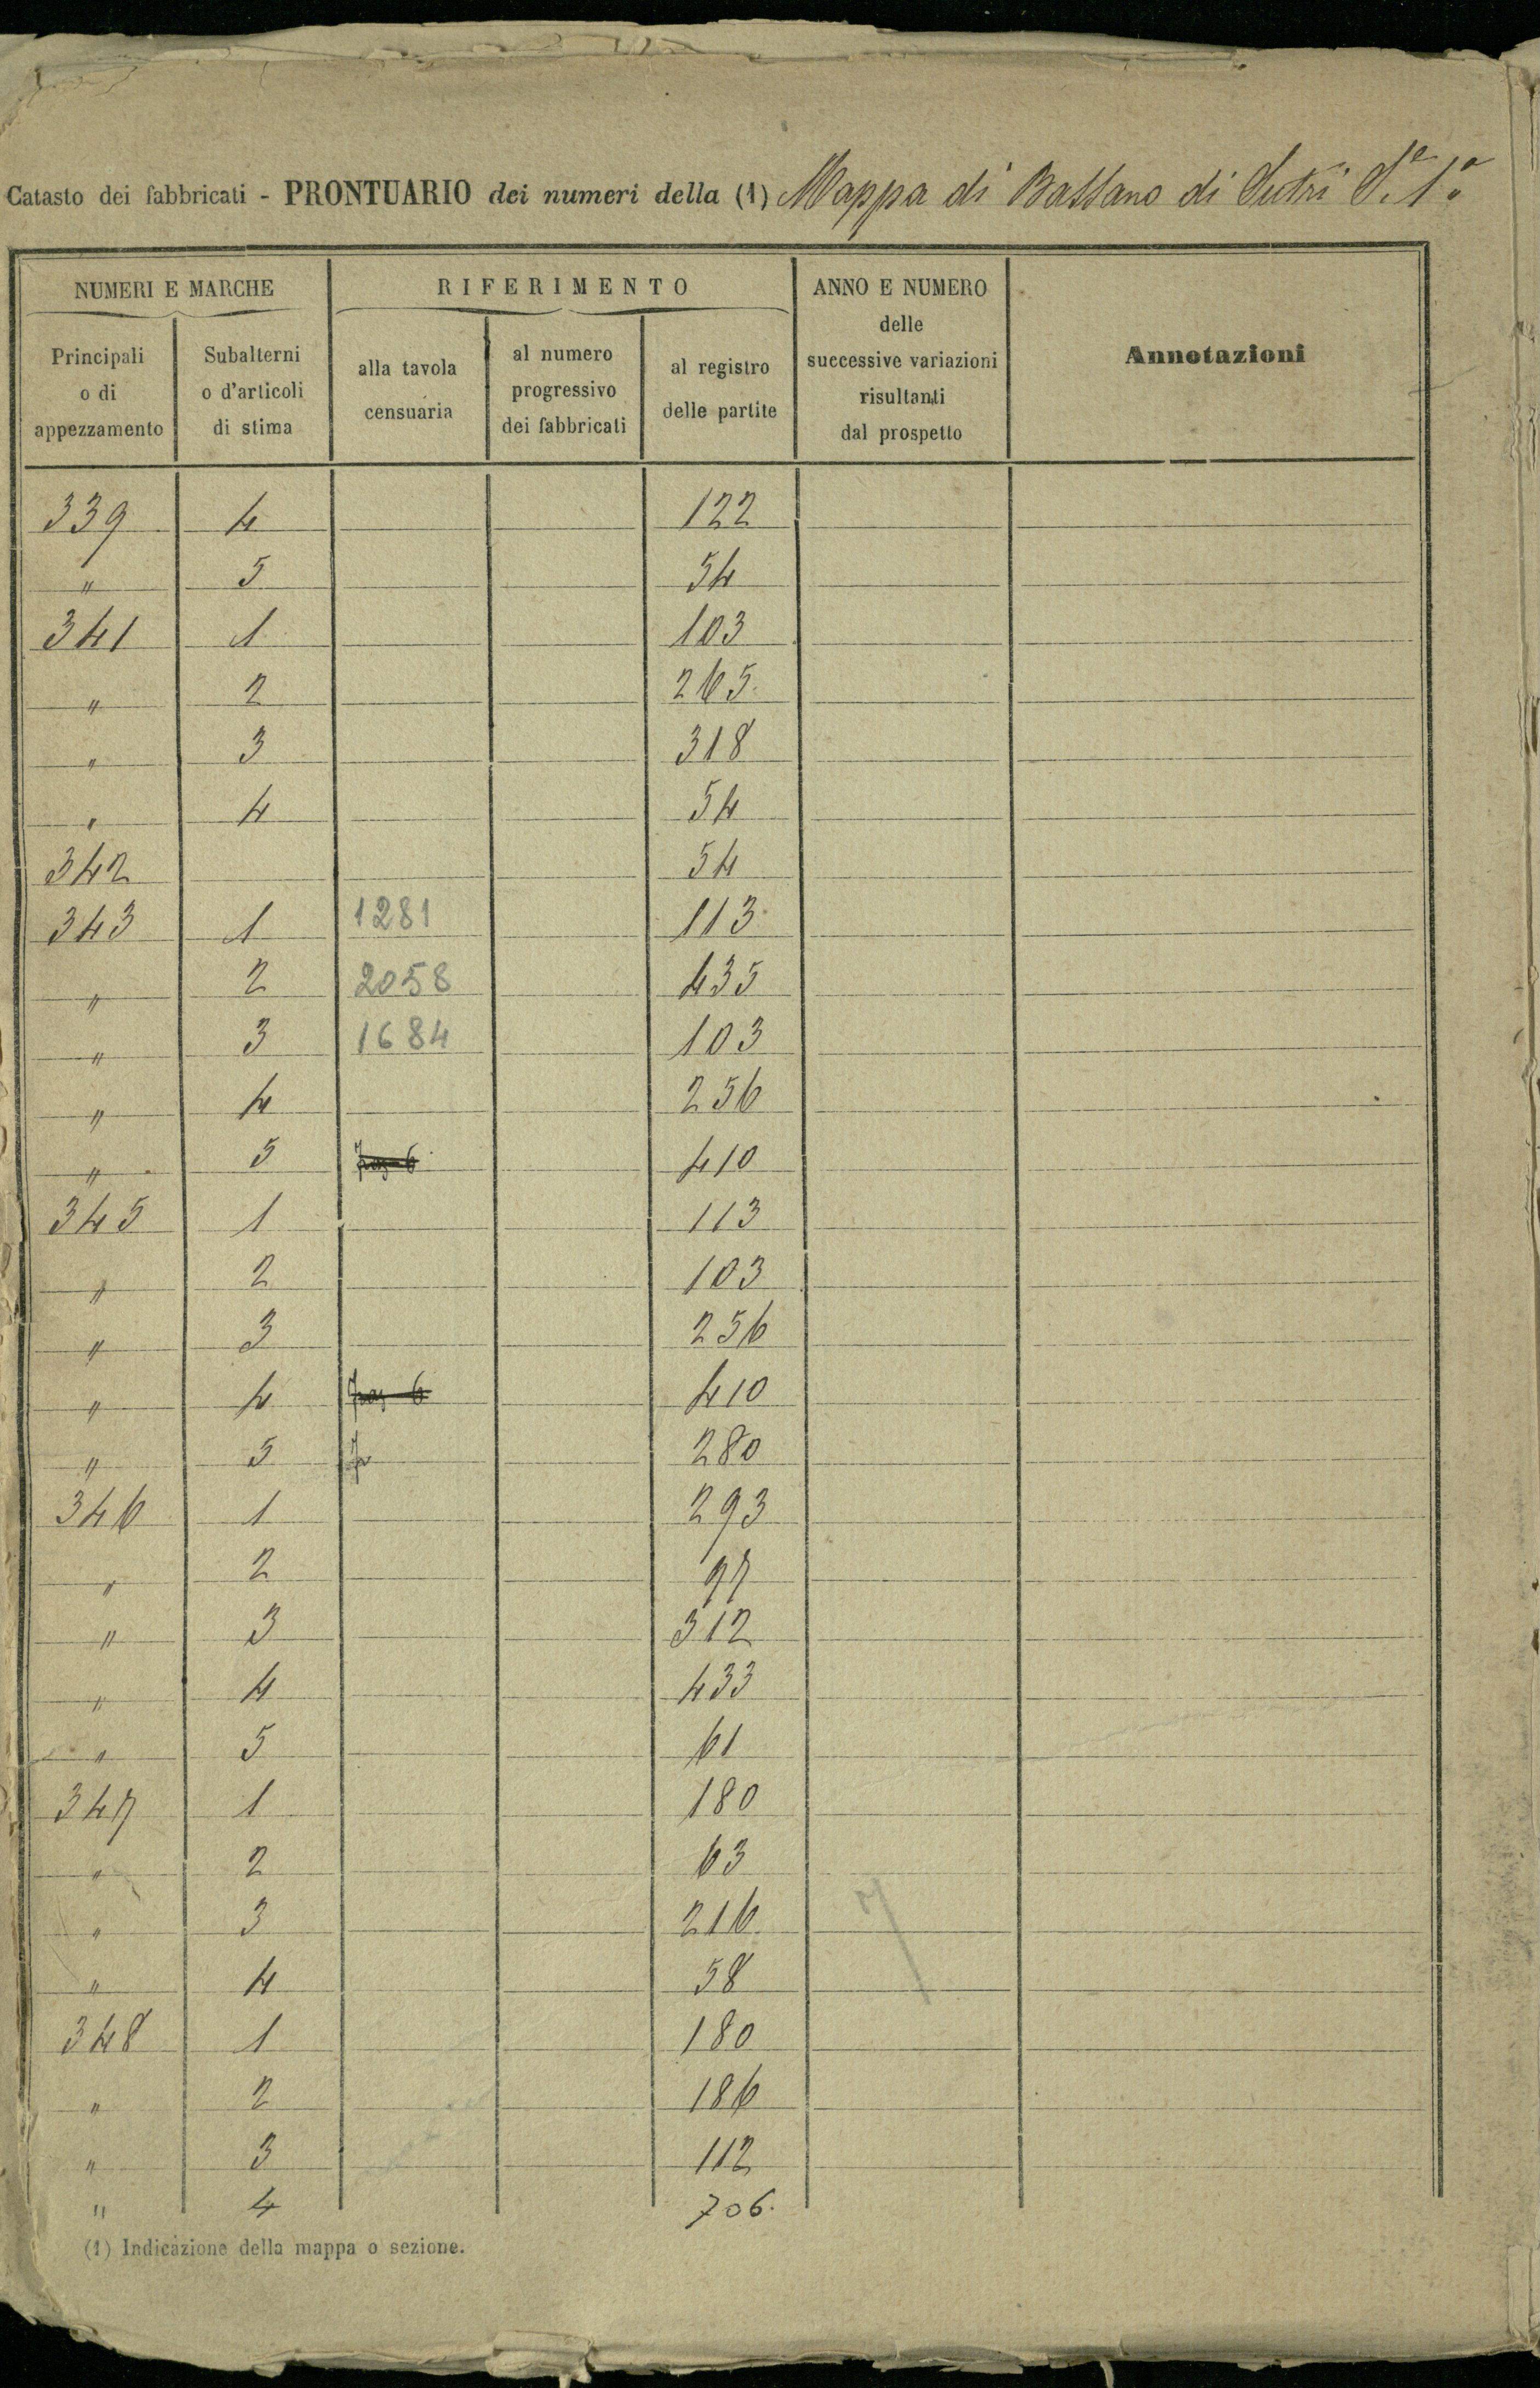 Catasto dei fabbricati - PRONTUARIO dei numeri della (1) Mappa di Bassano di Sutri S.e 1.a
NUMERI E MARCHE
Principali o di appezzamento
Subalterni o d'articoli di stima
RIFERIMENTO
alla tavola censuaria
al numero progressivo dei fabbricati
al registro delle partite
ANNO E NUMERO delle successive variazioni risultanti dal prospetto
Annotazioni
339 4 122
" 5 54
341 1 103
" 2 265
" 3 318
" 4 54
342 54
343 1 1281 113
" 2 2058 435
" 3 1684 103
" 4 256
" 5 410
345 1 113
" 2 103
" 3 256
" 4 410
" 5 280
346 1 293
" 2 97
" 3 312
" 4 433
" 5 61
347 1 180
" 2 63
" 3 216
" 4 58
348 1 180
" 2 186
" 3 112
" 4 706.
(1) Indicazione della mappa o sezione.